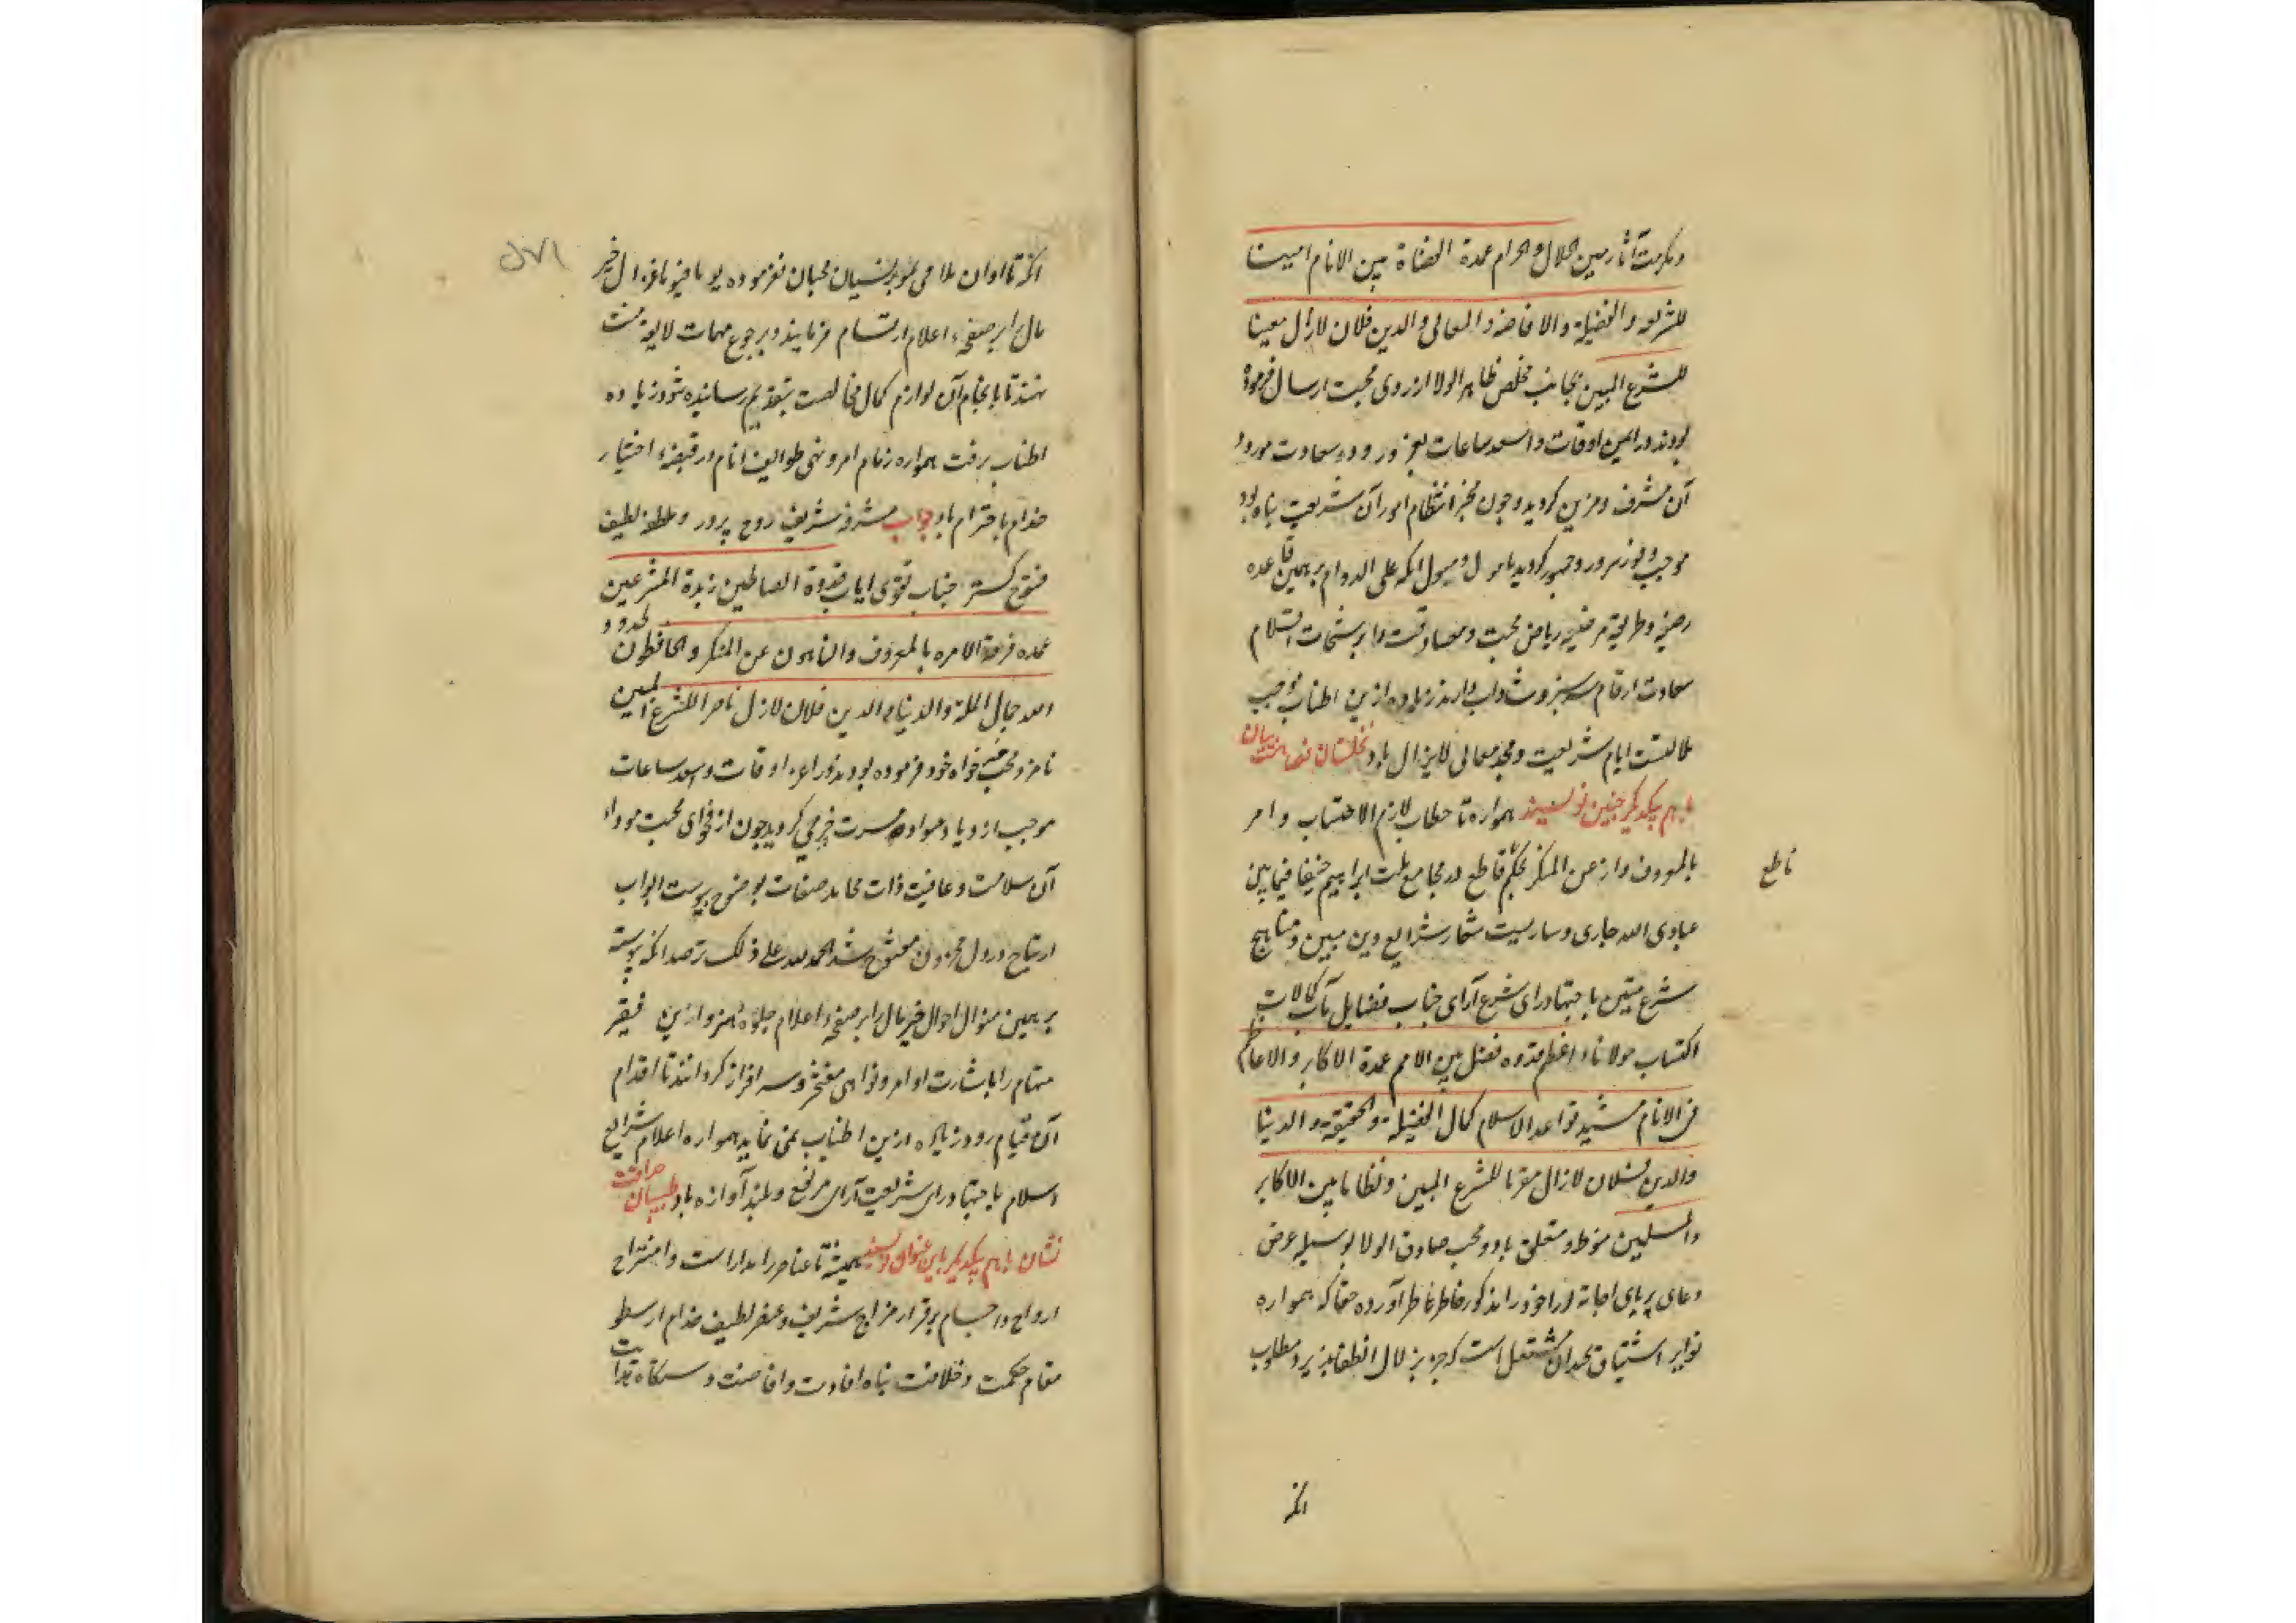 ومکرمت آثار مبین الحلال و الحرام عمدة القضاة بین الانام امینا
للشریعه و الفضیله و الافاضه و المعالی و الدین فلان لازال معینا
للشرع المبین بجانب مخلص ظاهر الولا از روی محبت ارسال فرموده
بودند در ایمن اوقات و اسعد ساعات بعز ورود سعادت مورود
آن مشرف و مزین کردید و چون مخبر انتظام امور آن شریعت پناه بود
موجب وفور سرور و حبور کردید مامول و مسول انکه علی الدوام بر همین قاعده
رضیه و طریقه مرضیه ریاض محبت و مصادقت را برشحات اقلام
سعادت ارقام سرسبز و شاداب دارند زیاده ازین اطناب موجب
ملالتست ایام شریعت و مجد معالی لایزال باد
باهم یکدیکر چنین نویسند همواره تا خطاب لازم الاحتساب وامر
بالمعروف وانه عن المنکر بحکم قاطع در مجامع ملت ابراهیم حنیفا فیمابین
قاطع
عبادی الله جاری و ساریست شعار شرایع دین مبین و مناهج
شرع متین باجتهاد رای شرع آرای جناب فضایل مآب کمالات
اکتساب مولانا اعظم قدوه فضل بین الامم عمدة الاکابر و الاعاظم
فی الانام مشید قواعد الاسلام کمال الفضیلة و الحقیقة و الدنیا
والدین فلان لازال مقرما للشرع المبین و نظاما بین الاکابر
والمسلمین منوط و متعلق باد و محب صادق الولا بوسیله عرض
دعای بریای اجابة خود را مذکور خاطر عاطر آورده حقا که همواره
نوایر اشتیاق بحدان مشتعل است که جز بزلال انطفا پذیرد مطلوب
انکه
انکه تا اوان ملاقی محبان نفرموده یوما فیوما احوال خیر
مال را بر صفحه اعلام ارتسام فرمایند و برجوع مهمات لایقه منت
نهند تا بانجام آن لوازم کمال مخالصت بتقدیم رسانیده شود زیاده
اطناب نرفت همواره زمام امر و نهی طوایف انام در قبضه اختیار
خدام با احترام باد جواب مشرفه شریف روح پرور و ملطفه لطیف
فتوح کستر جناب تقوی ایاب قدوة الصالحین زبدة المتشرعین
عمده فرقة الامره بالمعروف والناهون عن المنکر والحافظون لحدود
الله جمال الملة والدنیا و الدین فلان لازال ناصرا للشرع المبین
نامزد محب خیر خواه خود فرموده بودند در اعز اوقات و اسعد ساعات
موجب ازدیاد مواد مسرت و خرمی کردید چون از فحوای محبت مودای
آن سلامت و عافیت ذات محامد صفات بوضوح پیوست ابواب
ارتیاح در دل محزون مفتوح شد الحمد لله علی ذلک ترصد انکه پیوسته
بر همین منوال احوال خیر مال را بر صفحه اعلام جلوه دهند و ازین فقیر
مهام را باشارت اوامر و نواهی مفتخر و سرافراز کردانند تا اقدام
آن قیام رود زیاده ازین اطناب نمی نماید همواره اعلام شرایع
اسلام باجتهاد رای شریعت آرای مرتفع و بلند آوازه باد طبیبان حذاقت
نشان باهم یکدیکر باین عنوان نویسند همیشه تا عناصر را مدار است و امتزاج
ارواح و اجسام برقرار مزاج شریف و عنصر لطیف خدام ارسطو
مقام حکمت و خلافت پناه افادت و افاضت دستکاه